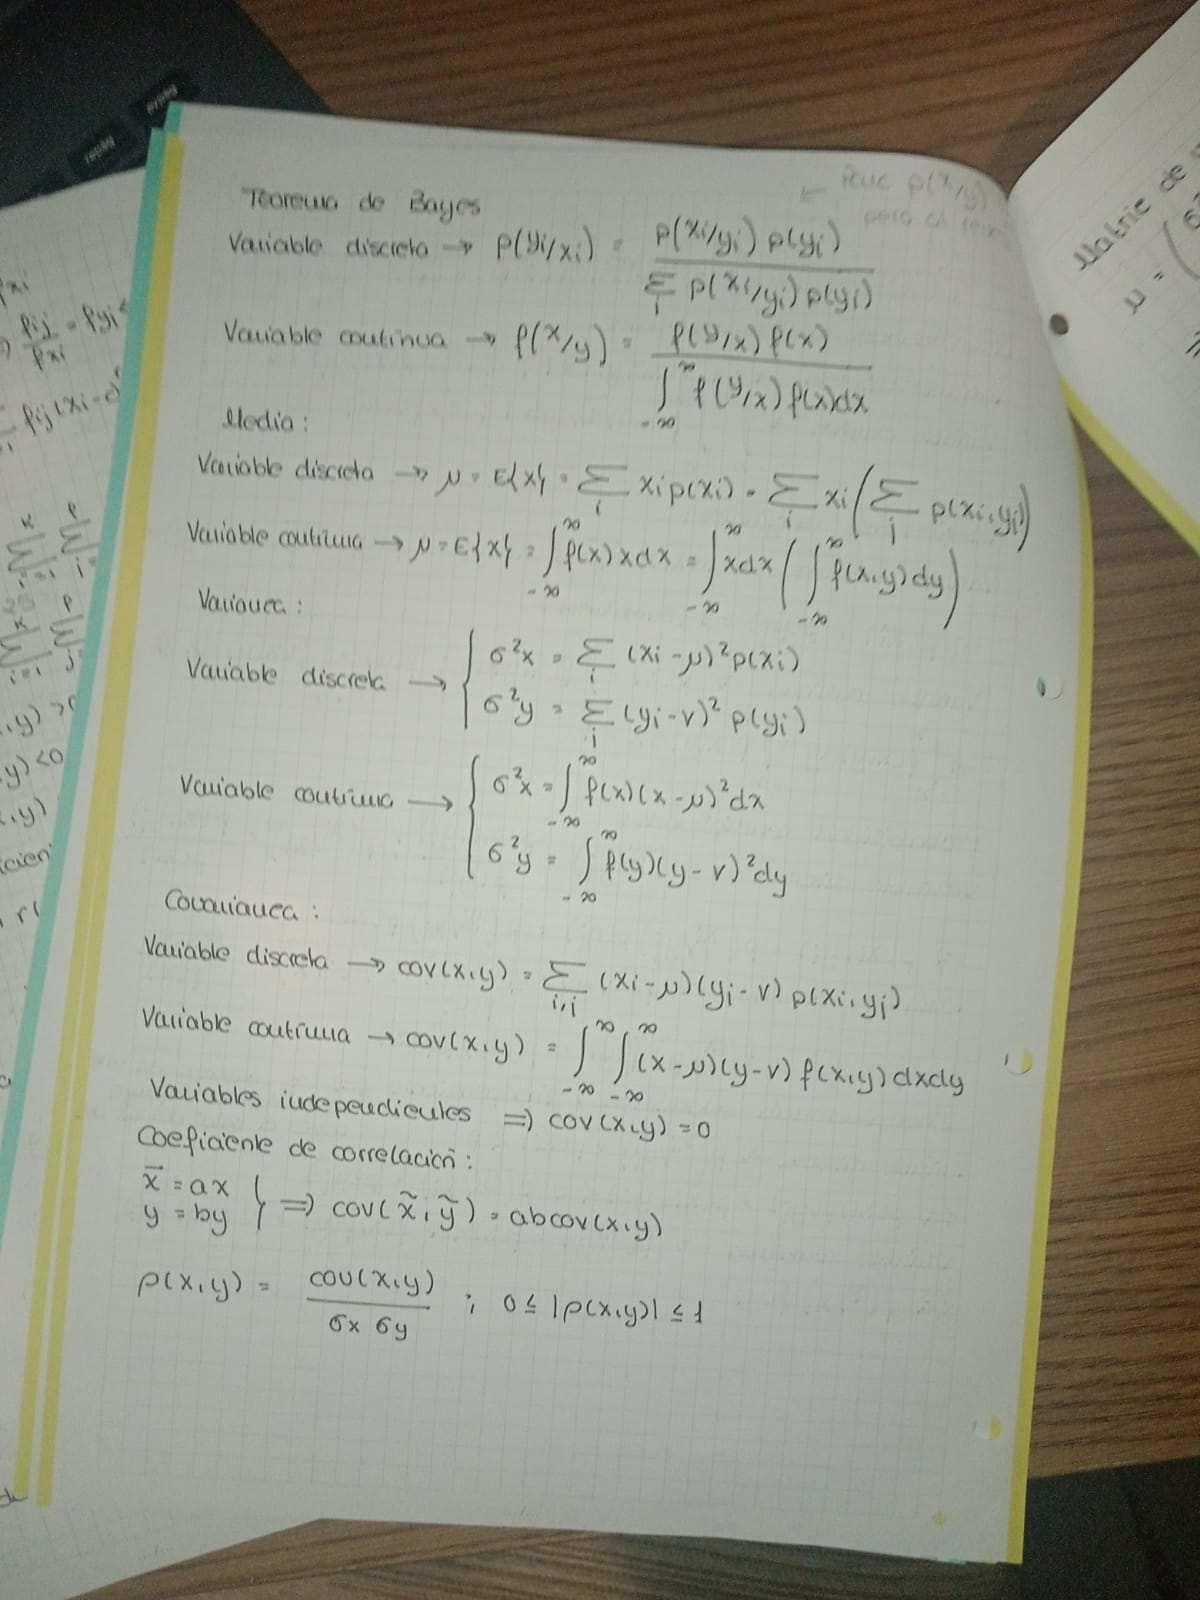 Teorema de Bayes
← Para p(x/y)
pero al
Variable discreta → p(yj/xi) = p(xi/yj) p(yj) / Σj p(xi/yj) p(yj)
Variable continua → f(x/y) = f(y/x) f(x) / ∫-∞^∞ f(y/x) f(x)dx
Media:
Variable discreta → μ = E{x} = Σi xi p(xi) = Σi xi (Σj p(xi,yj))
Variable continua → μ = E{x} = ∫-∞^∞ f(x) x dx = ∫-∞^∞ x dx (∫-∞^∞ f(x,y) dy)
Varianca:
Variable discreta → { σ²x = Σi (xi-μ)² p(xi)
σ²y = Σj (yj-ν)² p(yj)
Variable continua → { σ²x = ∫-∞^∞ f(x)(x-μ)² dx
σ²y = ∫-∞^∞ f(y)(y-ν)² dy
Covarianca:
Variable discreta → cov(x,y) = Σi,j (xi-μ)(yj-ν) p(xi,yj)
Variable continua → cov(x,y) = ∫-∞^∞ ∫-∞^∞ (x-μ)(y-ν) f(x,y) dxdy
Variables independientes ⇒ cov(x,y) = 0
Coeficiente de correlación:
x̄ = ax
y = by } ⇒ cov(x̃,ỹ) = abcov(x,y)
ρ(x,y) = cov(x,y) / σx σy ; 0 ≤ |ρ(x,y)| ≤ 1
Matriz de
μ =